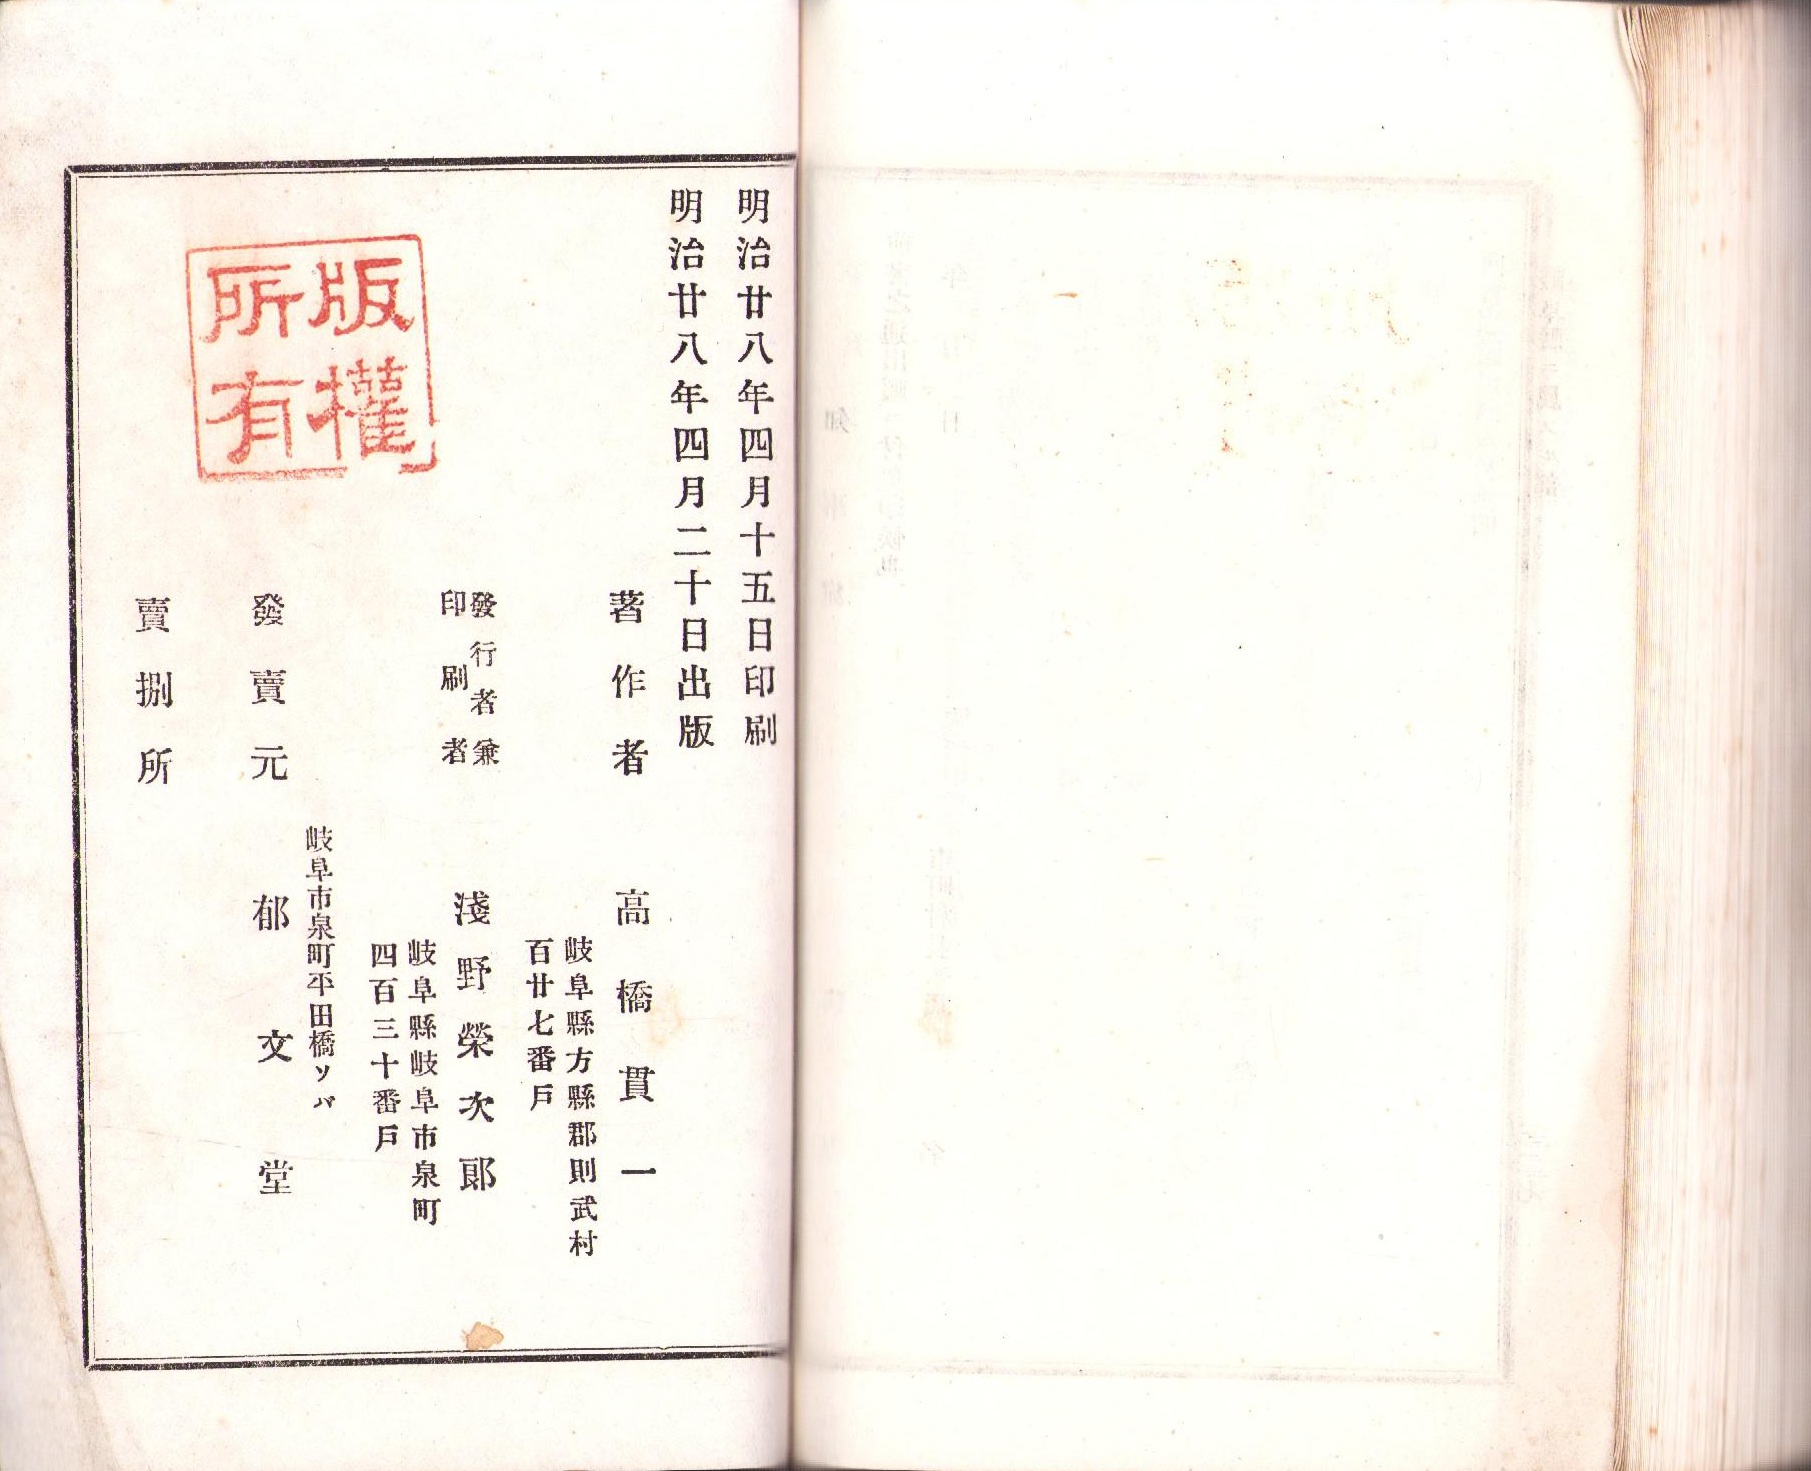 明治廿八年四月十五日印刷
明治廿八年四月二十日出版
著作者 高橋貫一
岐阜縣方縣郡則武村
百廿七番戸
發行者兼
印刷者
淺野榮次郎
岐阜縣岐阜市泉町
四百三十番戸
岐阜市泉町平田橋ソバ
發賣元 郁文堂
賣捌所
版權
所有